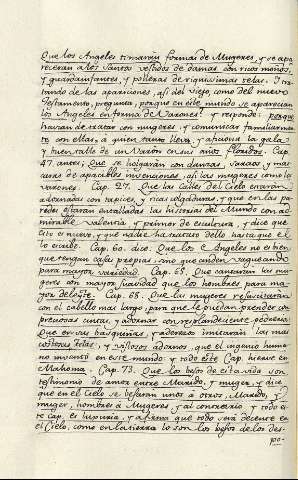 Que los Angeles tomaràn formas de Mugeres, y se apa
receràn a los Santos vestidos de damas con ricos moños,
y guardainfantes, y polleras de riquissimas telas. I tra
tando de las apariciones, assi del viejo como del nuevo
Testamento, pregunta, porque en este mundo se aparecian
los Angeles en forma de Varones? y responde: porque
havian de tratar con mugeres, y comunicar familiarmen
te con ellas, a quien lleva, y la gala,
y buen talle de un Varon en sus años floridos. Cap.
47. antes, Que se holgaràn con danzas, saraos, y mas
caras de apacibles invenciones, assi las mugeres como los
varones. Cap. 27. Que las calles del Cielo estaràn
adornadas con tapices, y ricas colgaduras, y que en las pa
redes estaràn entalladas las historias del Mundo con ad
mirable valentia, y primor de escultura, y dice que
esto es nuevo, y que nadie ha tratado dello hasta que el
lo escribe. Cap. 60. dice. Que los Angeles no es bien
que tengan casas proprias, sino que anden vagueando
para mayor variedad. Cap. 65. Que cantaràn las mu
geres con mayor suavidad que los hombres para ma
yor deleyte. Cap. 68. Que las mugeres resucitaràn
con el cabello mas largo, para que le puedan prender en
preciosas cintas, y adornar con resplandeciente pedreria.
Que en sus basquiñas, y aderezos imitaràn las mas
costosas telas, y vistosos adornos, que el ingenio huma
no inventò en este mundo y todo este Cap. hierve en
Mahoma. Cap. 73. Que los besos de esta vida son
testimonio de amor entre Marido, y muger, y dice,
que en el Cielo se besaran unos à otros, Marido, y
muger, hombres à Mugeres, y al contrario y todo es
te Cap. es luxuria, y afirma que todo serà decente en
el Cielo, como en la tierra lo son los besos de los des
po-